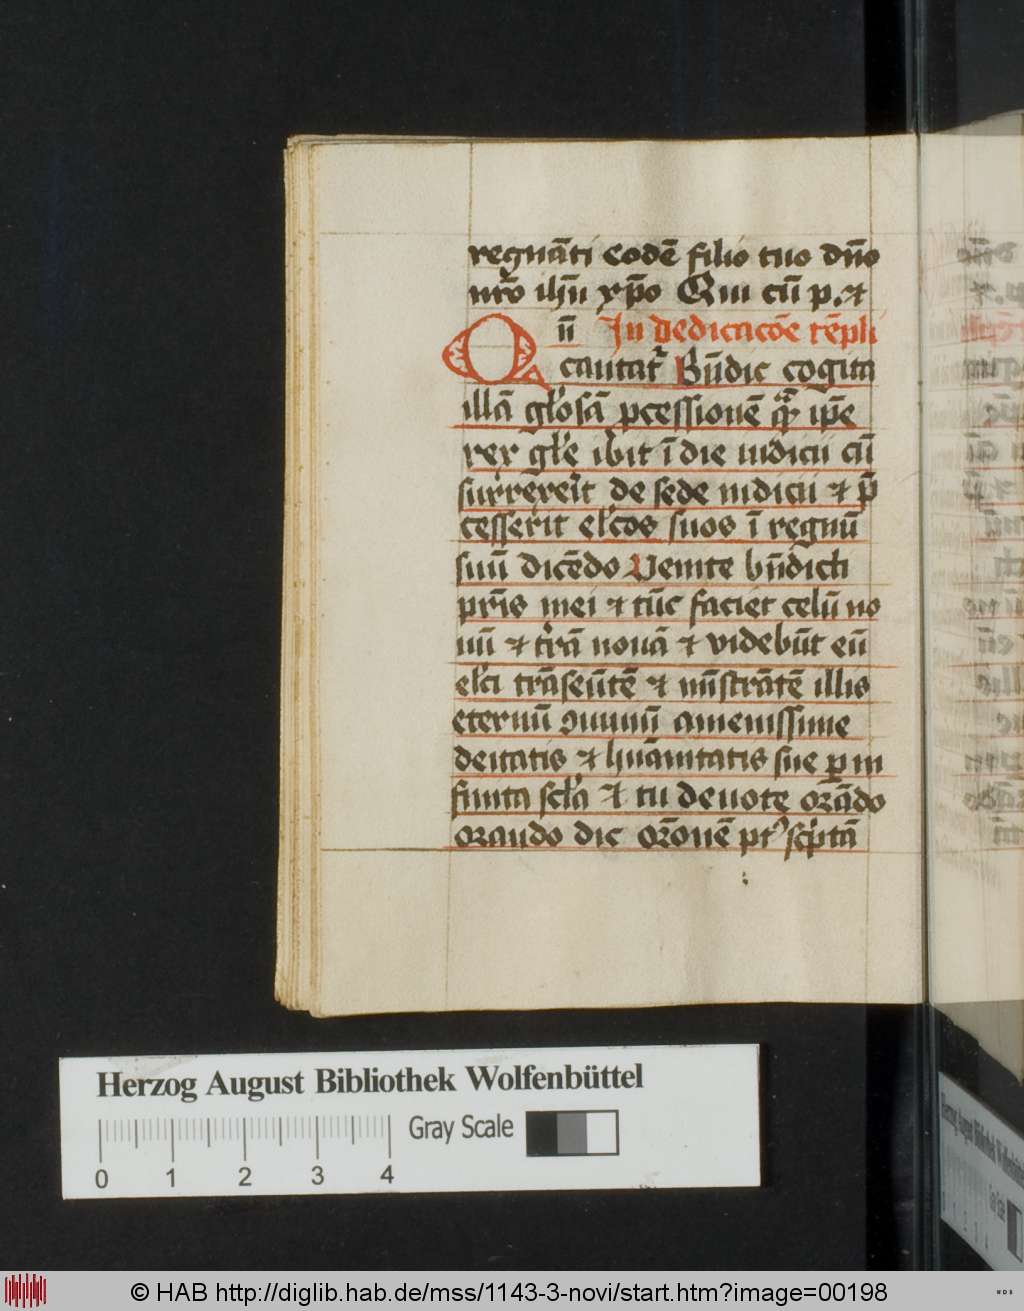 regnāti eodē filio tuo dño
nr̄o ihū xp̄o Qui cū p. ⁊
Qñ In dedicacōe tēpli
cantat᷑ Bn̄dic cogita
illā gl̓osā ꝓcessionē qͣ ip̄e
rex gl̓e ibit ī die iudicii cū
surrexerit de sede iudicii ⁊ p̄
cesserit el̓cos suos ī regnū
suū dicēdo Venite bn̄dicti
pr̄is mei ⁊ tūc faciet celū no
uū ⁊ t̓rā nouā ⁊ videbūt eū
el̓ci trāseūtē ⁊ mīstrātē illis
eternū ꝯuiuiū amenissime
deitatis ⁊ hūanitatis sue ꝑ in
finita sc̄la ⁊ tu deuote orādo
orando dic or̄onē pt᷒ sc̓ptā
Herzog August Bibliothek Wolfenbüttel
Gray Scale
0 1 2 3 4
© HAB http://diglib.hab.de/mss/1143-3-novi/start.htm?image=00198